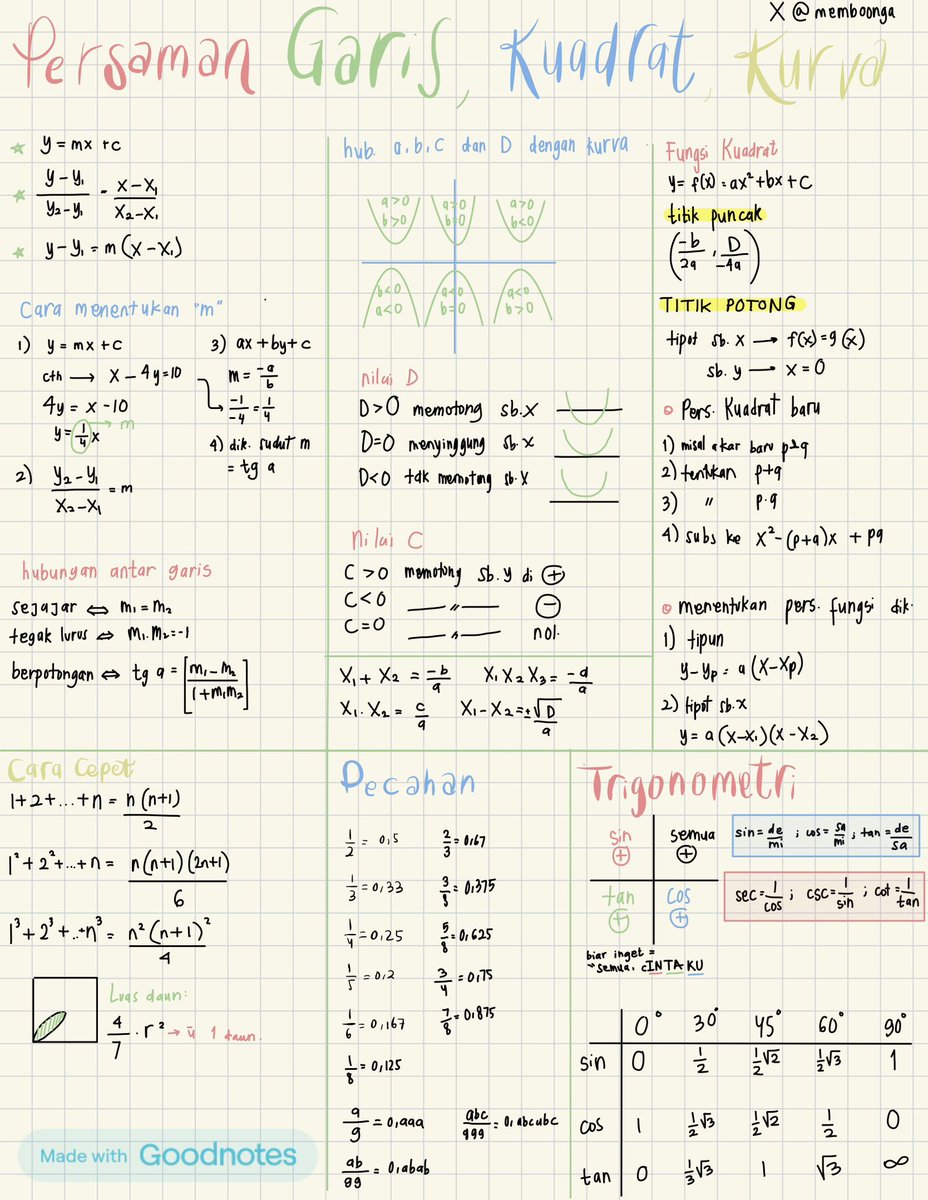 X @memboonga
Persaman Garis, Kuadrat, Kurva
☆ y = mx + c
☆ y-y₁/y₂-y₁ = x-x₁/x₂-x₁
☆ y-y₁ = m(x-x₁)
Cara menentukan "m"
1) y = mx + c
cth → x - 4y = 10
4y = x - 10
y = 1/4 x → m
2) y₂-y₁/x₂-x₁ = m
3) ax + by + c
m = -a/b
-1/-4 = 1/4
4) dik. sudut m
= tg a
hubungan antar garis
sejajar ⇔ m₁ = m₂
tegak lurus ⇔ m₁.m₂ = -1
berpotongan ⇔ tg a = [m₁-m₂/1+m₁m₂]
hub. a,b,c dan D dengan kurva
a>0 a>0 a>0
b>0 b=0 b<0
b<0 a<0 a<0
a<0 b=0 b>0
nilai D
D>0 memotong sb.x
D=0 menyinggung sb.x
D<0 tdk memotong sb.x
nilai C
C>0 memotong sb.y di ⊕
C<0 —〃— ⊖
C=0 —〃— nol.
x₁+x₂ = -b/a x₁x₂x₃ = -d/a
x₁.x₂ = c/a x₁-x₂ = ±√D/a
Fungsi Kuadrat
y = f(x) = ax²+bx+c
titik puncak
(-b/2a , D/-4a)
TITIK POTONG
tipot sb.x → f(x)=g(x)
sb.y → x=0
○ Pers. Kuadrat baru
1) misal akar baru p&q
2) tentukan p+q
3) 〃 p.q
4) subs ke x²-(p+q)x + pq
○ menentukan pers. fungsi dik.
1) tipun
y-yp = a(x-xp)
2) tipot sb.x
y = a(x-x₁)(x-x₂)
Cara Cepet
1+2+...+n = n(n+1)/2
1²+2²+...+n = n(n+1)(2n+1)/6
1³+2³+..+n³ = n²(n+1)²/4
Luas daun:
4/7 . r² → ū 1 daun.
Pecahan
1/2 = 0,5 2/3 = 0,67
1/3 = 0,33 3/8 = 0,375
1/4 = 0,25 5/8 = 0,625
1/5 = 0,2 3/4 = 0,75
1/6 = 0,167 7/8 = 0,875
1/8 = 0,125
a/9 = 0,aaa abc/999 = 0,abcabc
ab/99 = 0,abab
Trigonometri
sin ⊕ semua ⊕
tan ⊕ cos ⊕
sin = de/mi ; cos = sa/mi ; tan = de/sa
sec = 1/cos ; csc = 1/sin ; cot = 1/tan
biar inget =
→ semua. cINTAKU
0° 30° 45° 60° 90°
sin 0 1/2 1/2√2 1/2√3 1
cos 1 1/2√3 1/2√2 1/2 0
tan 0 1/3√3 1 √3 ∞
Made with Goodnotes